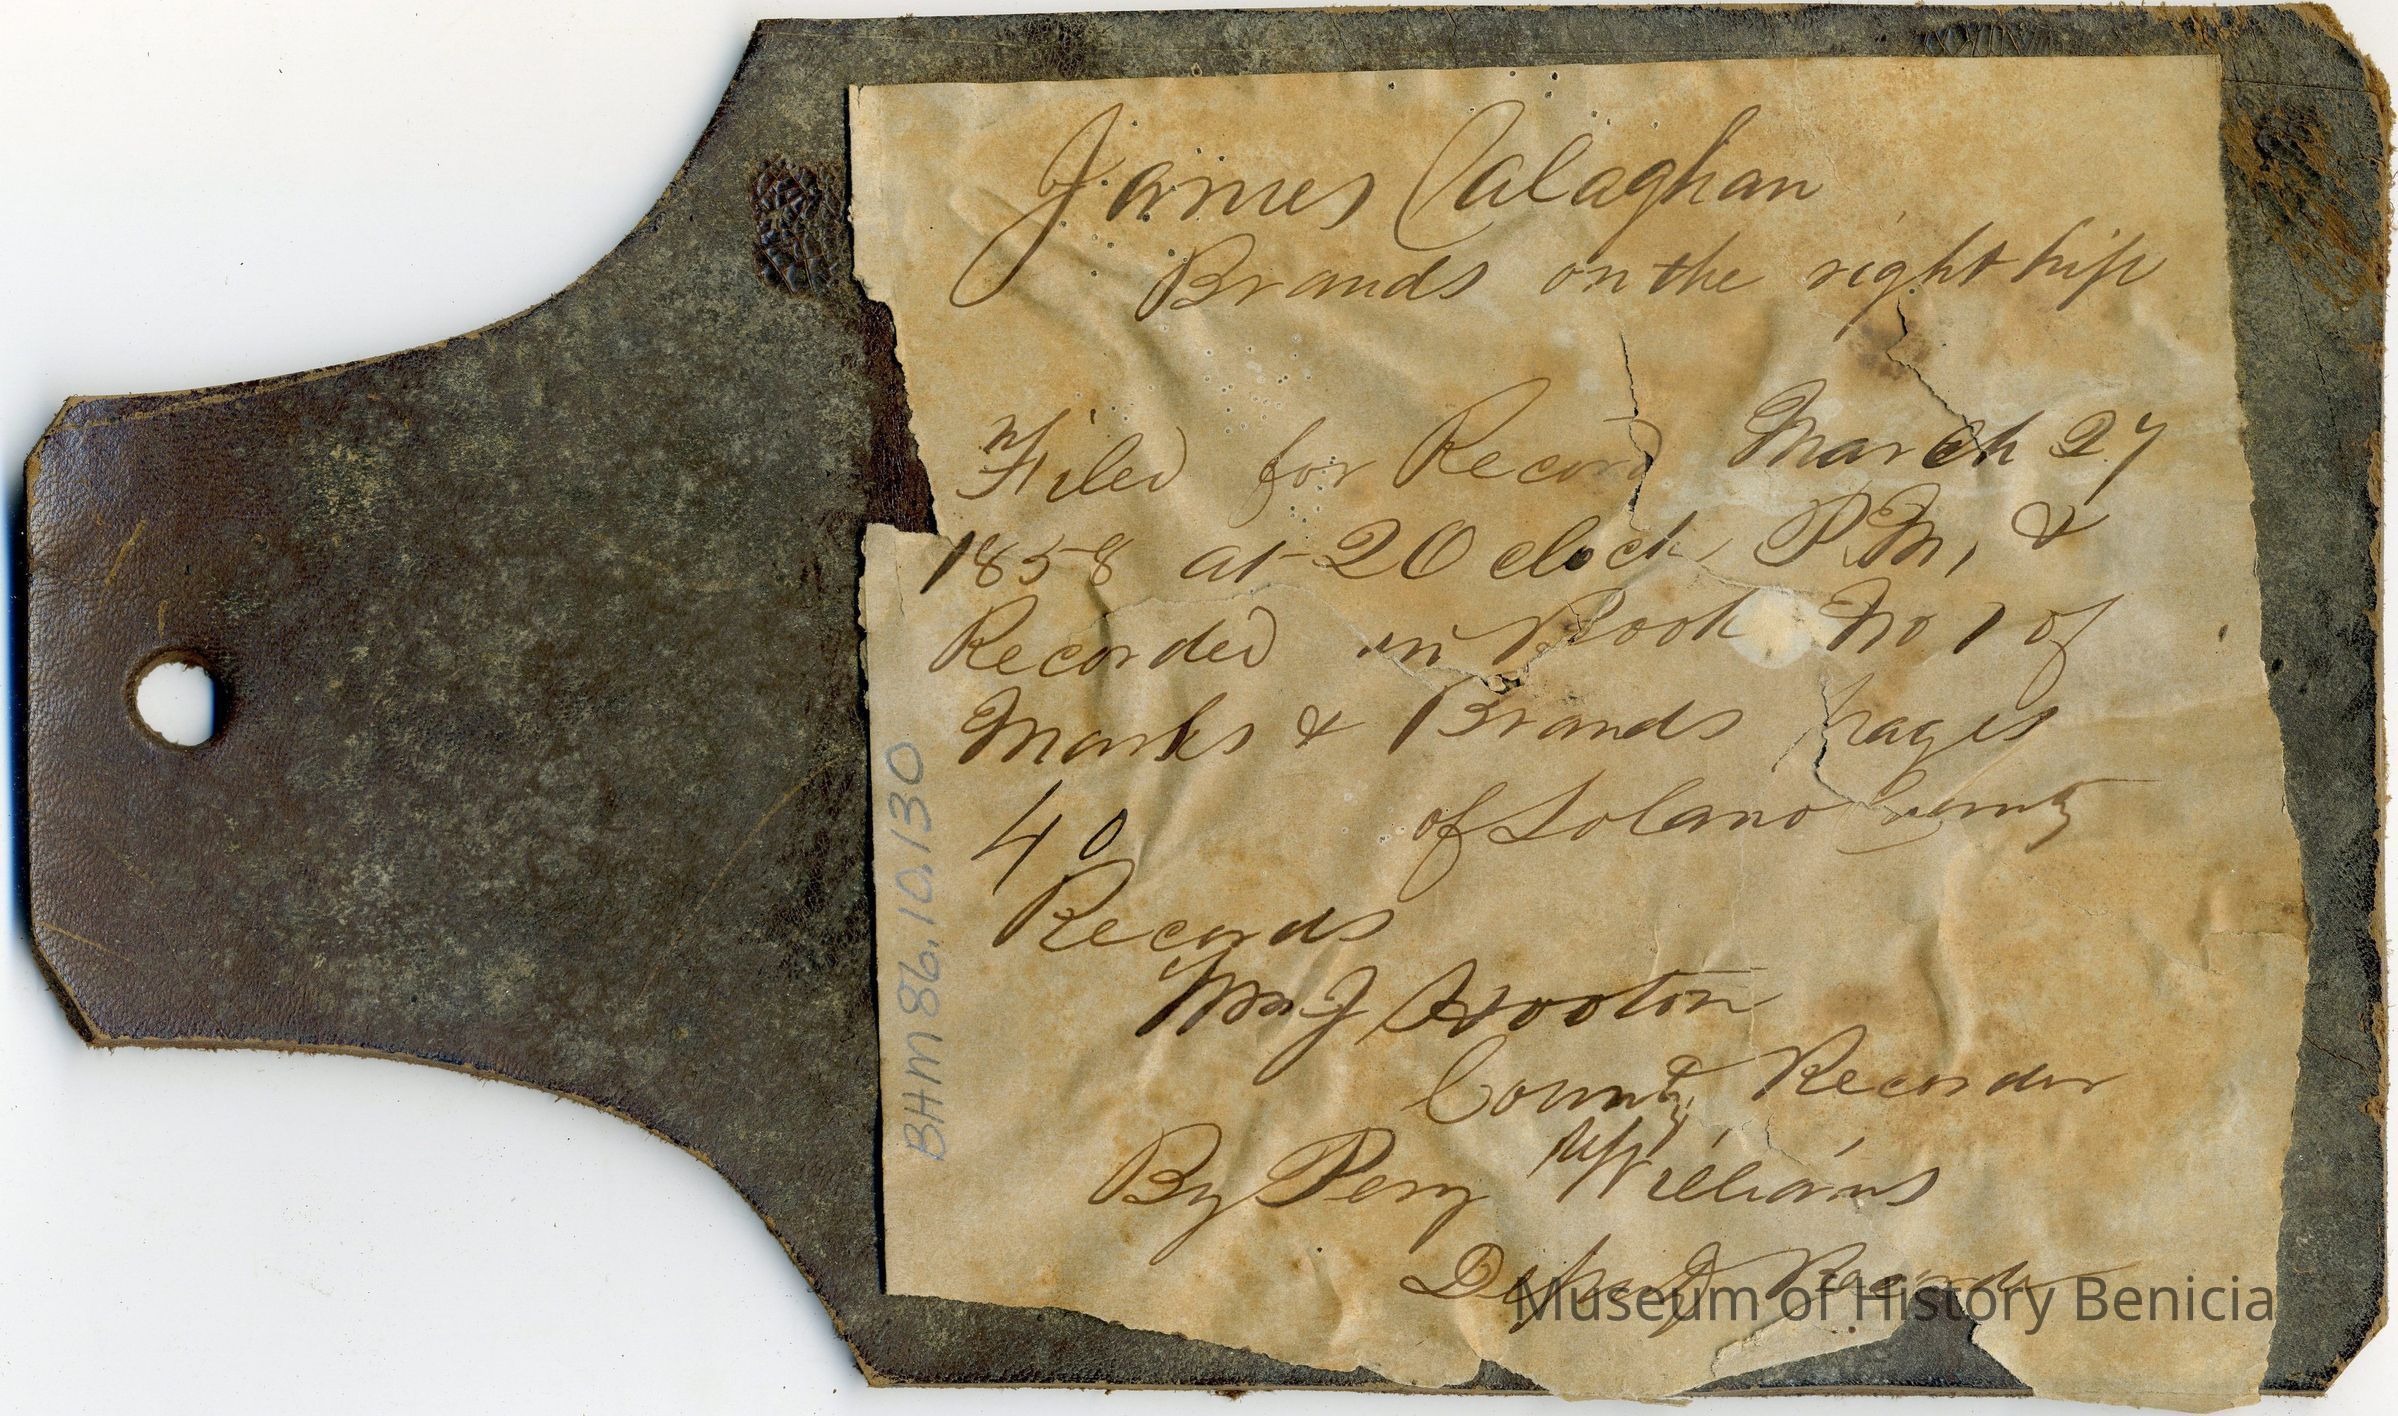 James Calaghan
Brands on the right hip
Filed for Record March 27
1858 at 2 O clock, P.M, &
Recorded in Book No 1 of
Marks & Brands pages
40 of Solano County
Records
Wm J Wooton
County Recorder
By Perry Williams
Deputy Recorder
BHM 86.10.130
Museum of History Benicia